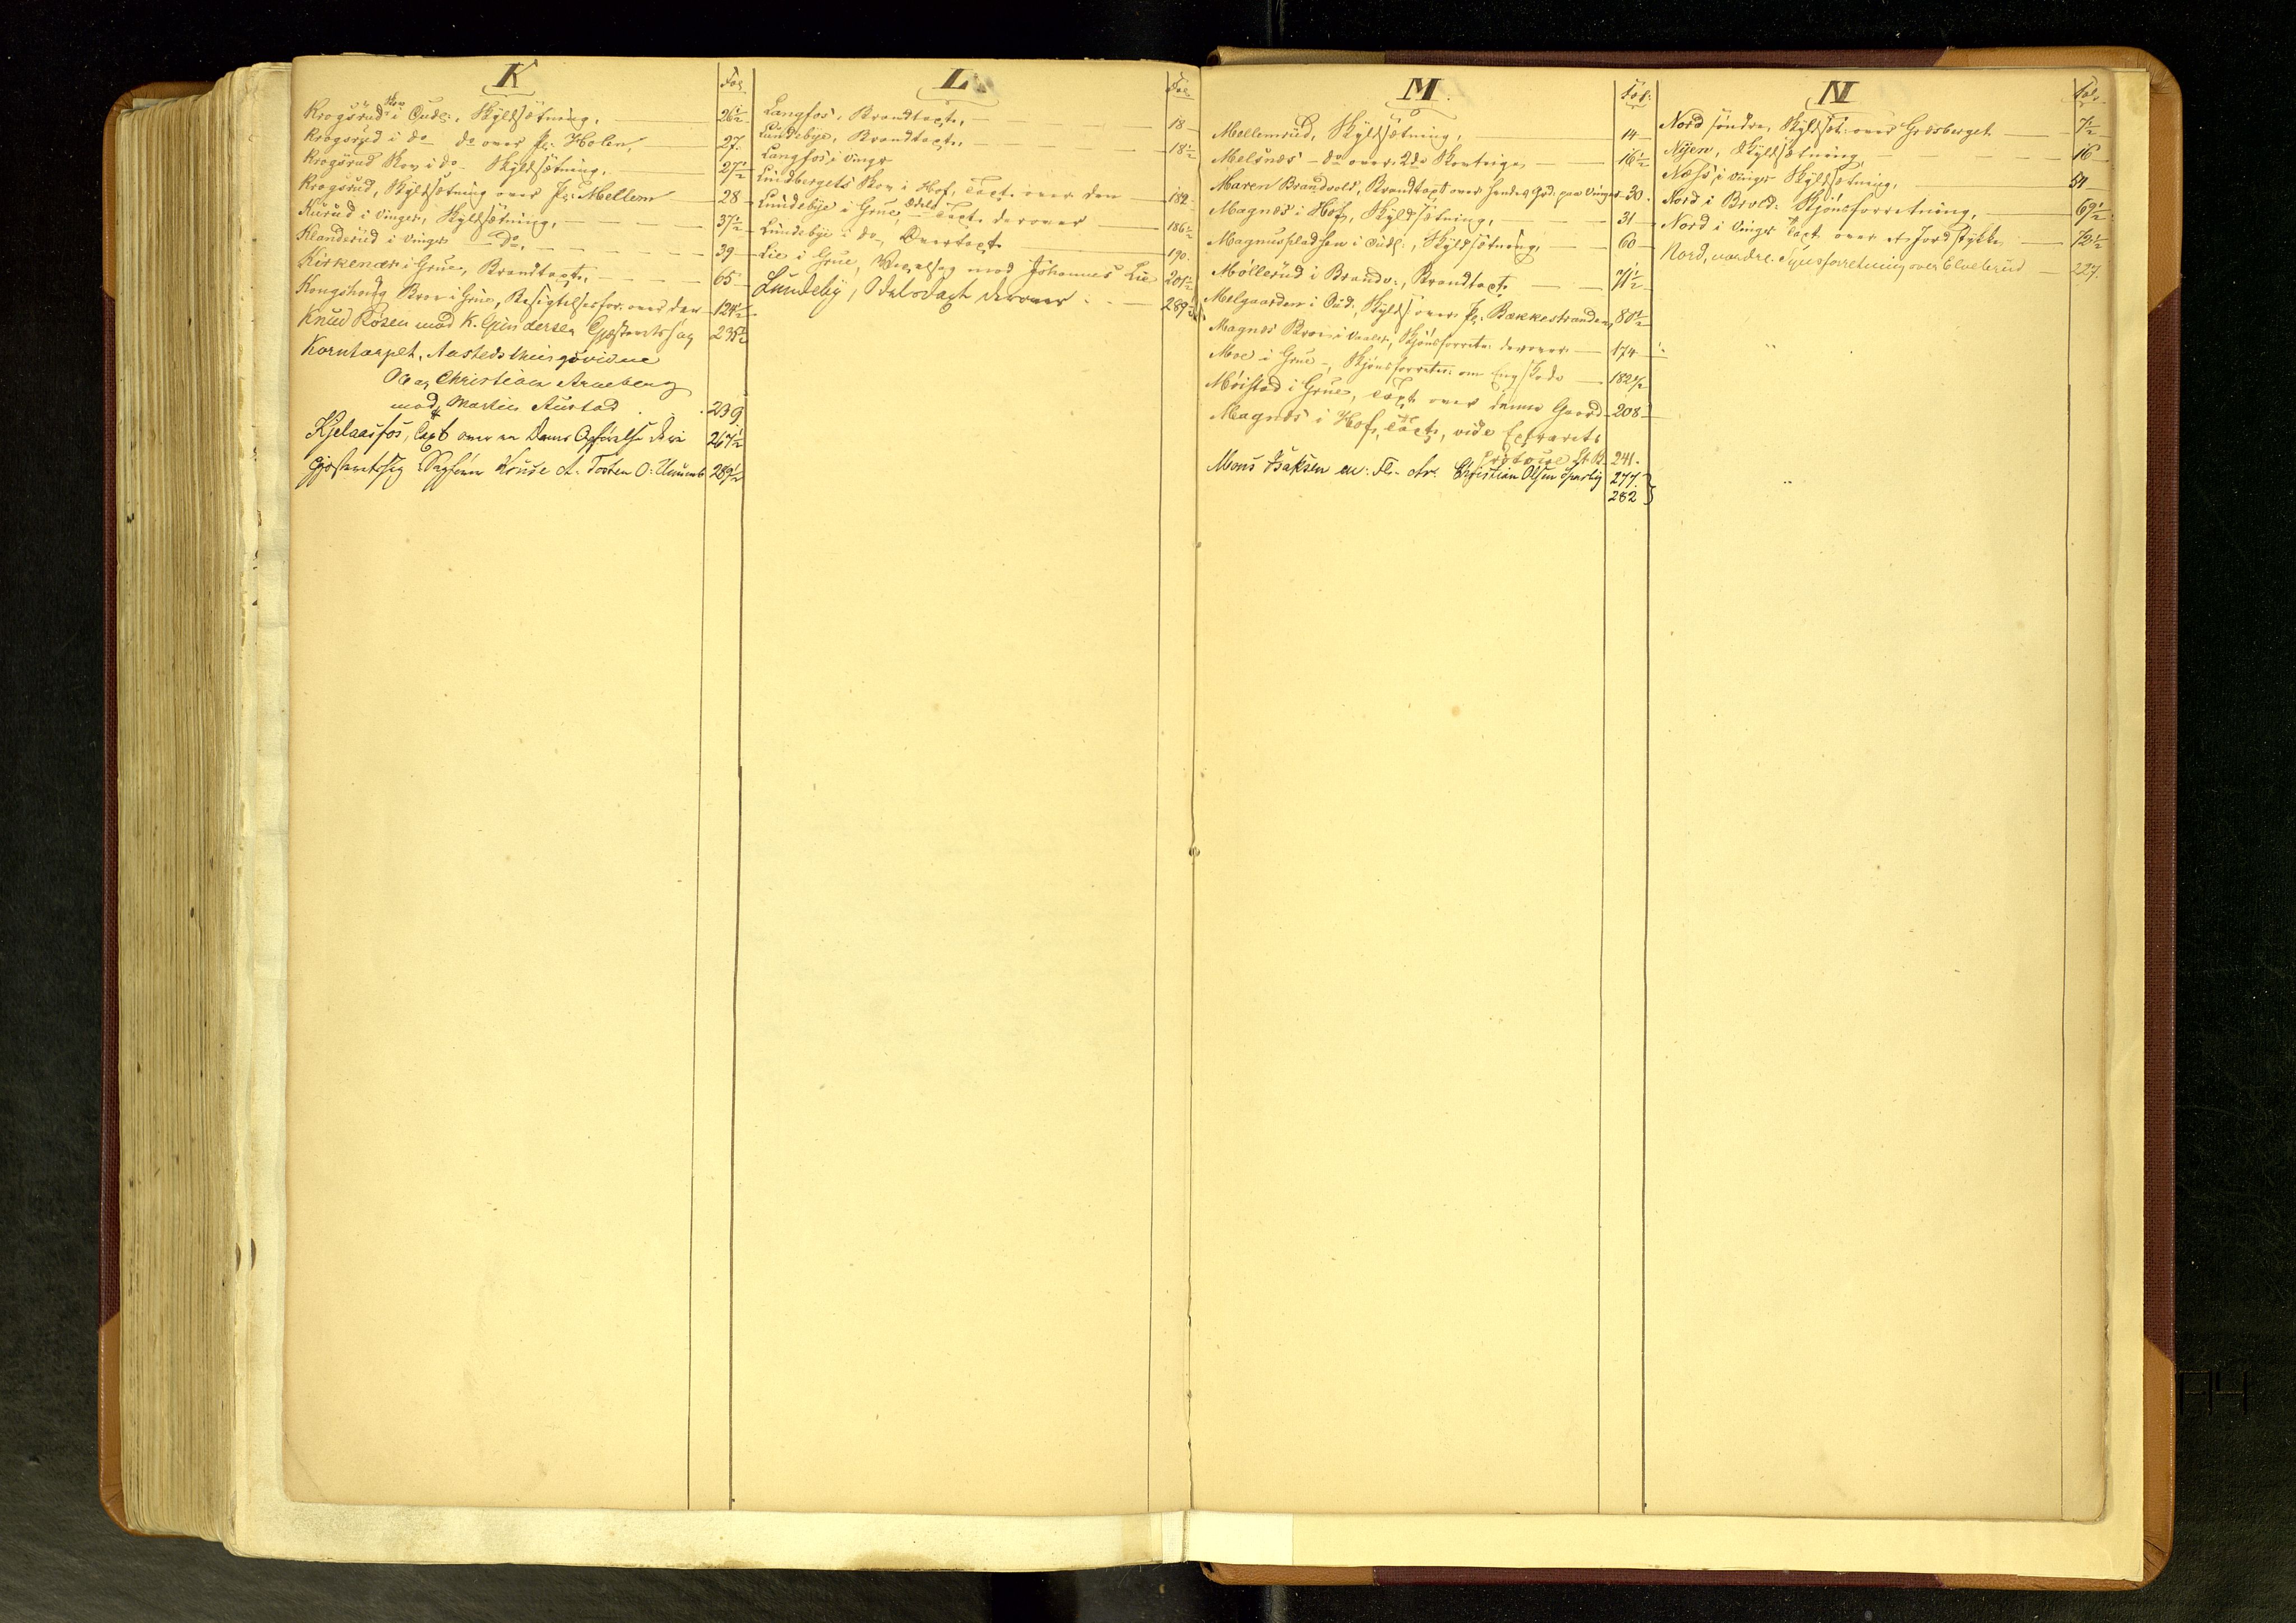 K
Fol.
Krogsrud Skov i Oudl:, Skyldsætning, 26½
Krogsrud i do do over Pl: Holen, 27.
Krogsrud Skov i do Skyldsætning, 27½
Krogsrud, Skyldsætning over Pl: Mellem 28
Kurud i Vinger, Skyldsætning, 37½
Klanderud i Vinger do, 39
Kirkenær i Grue, Brandtaxt, 65
Kongshoug Skov i Grue, Besigtelsesfor. over den 124½
Knud Rosen mod K. Gundersen Gjæsteretssag 235½
Korntorpet, Aastedsthingsvidne
Christian Arneberg
mod Martin Austad 239
Kjelaasfos, Taxt over en Dams Opførelse 267½
Gjæsteretssag Sagfører Kruse ct. Torsten O: 289½
L
Fol.
Langfos, Brandtaxt, 18
Lundebye, Brandtaxt, 18½
Langfos i Vinger
Lundbergets Skov i Hof, Taxt over den 182
Lundebye i Grue, Odels Taxt derover 186½
Lundebye i do, Overtaxt 190.
Lie i Grue, mod Johannes Lie 201½
Lundeby, Odelstaxt derover 289
M.
Fol:
Mellemrud, Skyldsætning, 14
Melsnæs do over 2de 16½
Maren Brandvold, Brandtaxt over hendes Grd. paa Vinger 30.
Magnæs i Hof, Skyldsætning, 31
Magnuspladsen i Oudl:, Skyldsætning, 60
Møllerud i Brandv:, Brandtaxt 71½
Melgaarden i Oud: Skylds over Pl: Bækkestranden, 80½
Magnæs Skov i Vaaler, Skjønsforretn: derover 174
Moe i Grue, Skjønsforretn: om Engskade 182½
Møistad i Grue, Taxt over denne Gaard 208
Magnæs i Hof, Taxt, vide Extrarets
Protocol Lit B. 241.
Mons Isaksen m: Fl. ctr. Christian Olsen Sparby 277.
282
N
Fol.
Nord søndre, Skyldsæt: over Græsberget 7½
Nyen, Skyldsætning, 16
Næss i Vinger Skyldsætning, 54
Nord i Brvold: Skjønsforretning, 69½
Nord i Vinger Taxt over et Jordstykke 72½
Nord, nordre. Synsforretning over Elveberud 227.